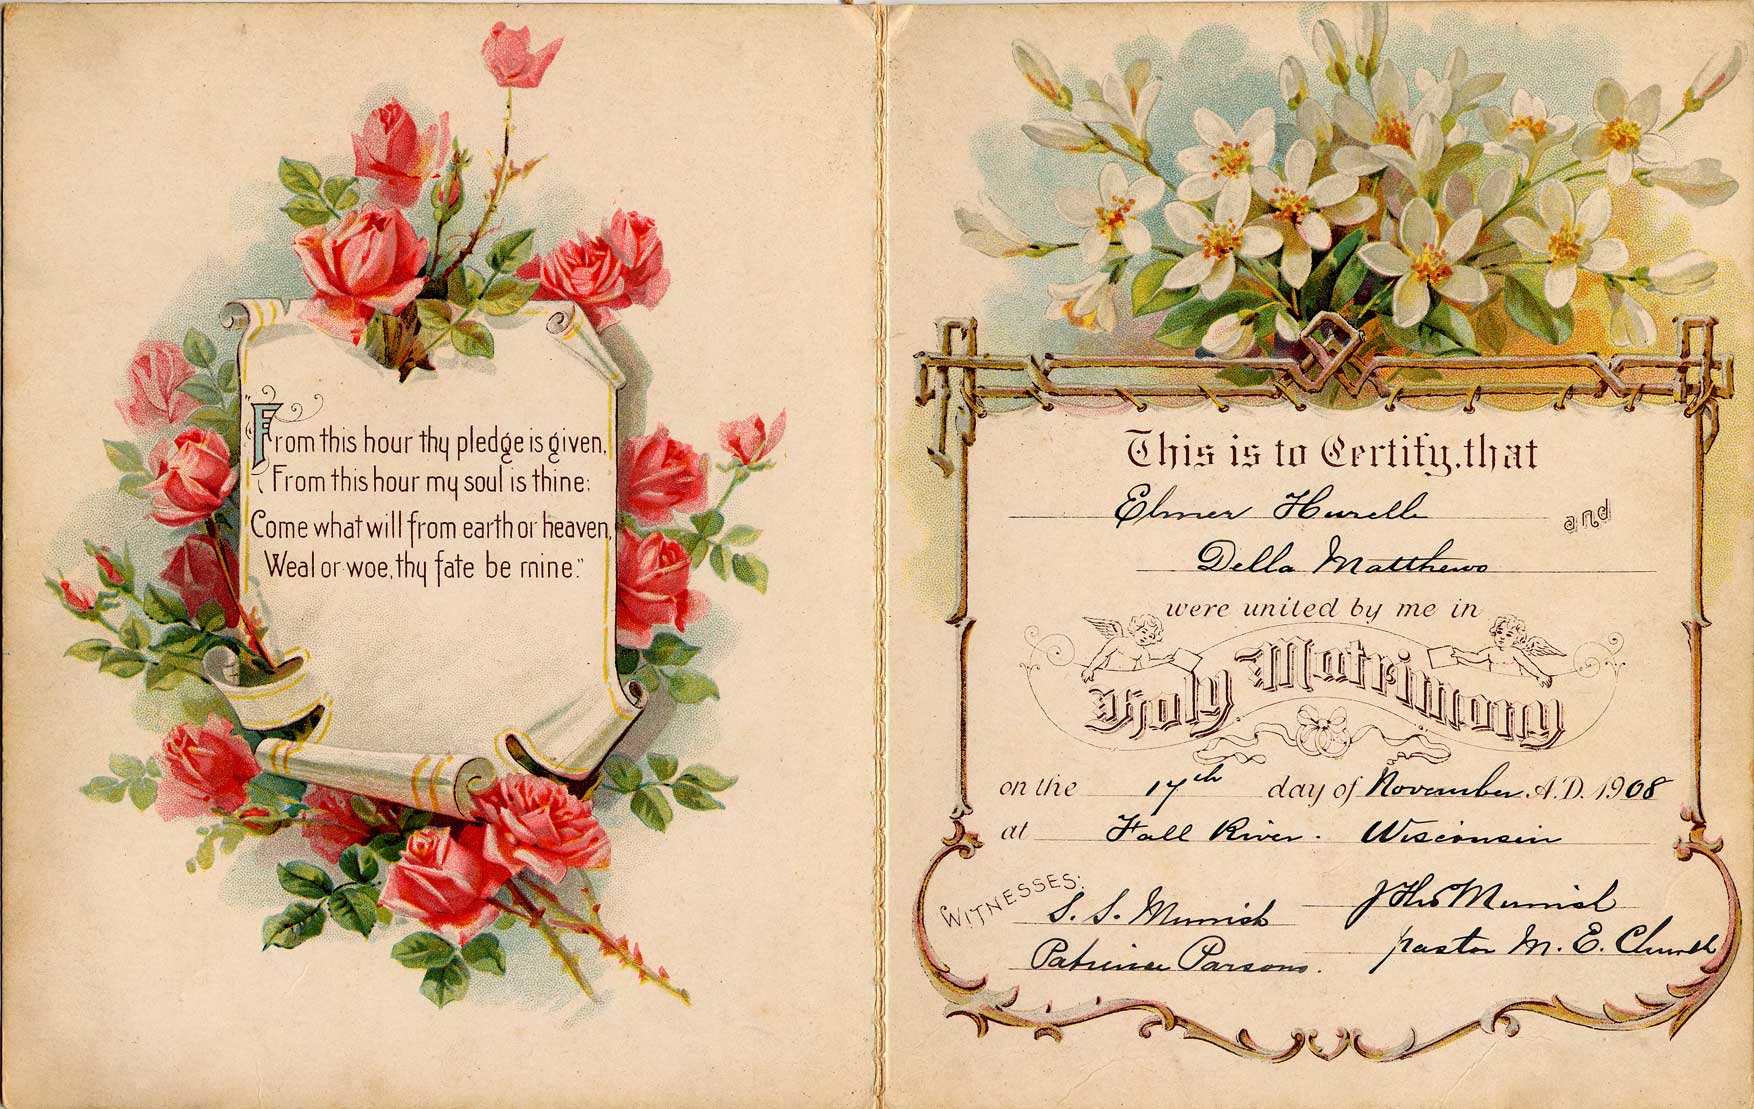 "From this hour thy pledge is given,
From this hour my soul is thine;
Come what will from earth or heaven,
Weal or woe, thy fate be mine."
This is to Certify, that
Elmer
and
Della Matthews
were united by me in
Holy Matrimony
on the 17th day of November A.D. 1908
at Fall River. Wisconsin
WITNESSES:
S. S.
Parsons.
pastor M. E. Church